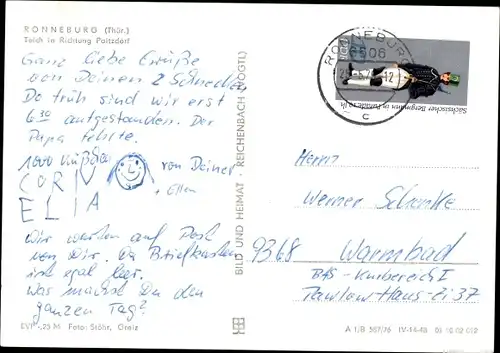 RONNEBURG (Thür.)
Teich in Richtung Poltzdorf
Ganz liebe Grüße
von Deinen 2 Schnecken
Do früh sind wir erst
6.30 aufgestanden. Der
Papa fehlte.
1000 Küßchen von Deiner
CORNELIA
+ Ellen
Wir warten auf Post
von Dir. Der Briefkasten
ist egal leer.
Was machst Du den
ganzen Tag?
EVP -,25 M Foto: Stöhr, Greiz
BILD UND HEIMAT · REICHENBACH (VOGTL)
RONNEBURG
6506
12
c
DDR
Sächsischer Bergmann in Parade 19. Jh.
Herrn
Werner Schenke
9368 Warmbad
BfS - Kurbereich I
Pawlow Haus - Zi 37
A 1/B 567/76 IV-14-48 01 10 02 012